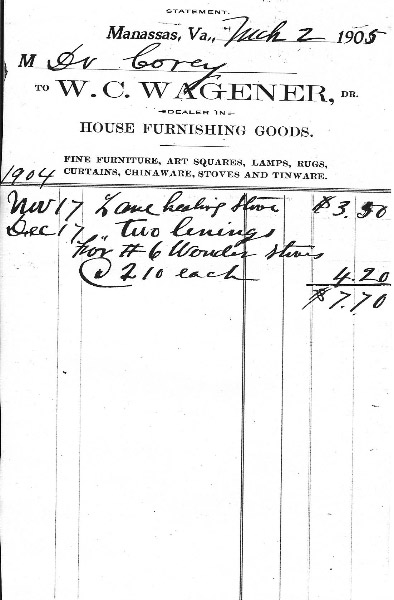 STATEMENT.
Manassas, Va., Mch 2 1905
M Dr Corey
TO W. C. WAGENER, DR.
DEALER IN
HOUSE FURNISHING GOODS.
FINE FURNITURE, ART SQUARES, LAMPS, RUGS,
CURTAINS, CHINAWARE, STOVES AND TINWARE.
1904
Nov 17 heating Stove $3.50
Dec 17 " two linings
For # 6 Wonder Stoves
@ 210 each 4.20
$7.70